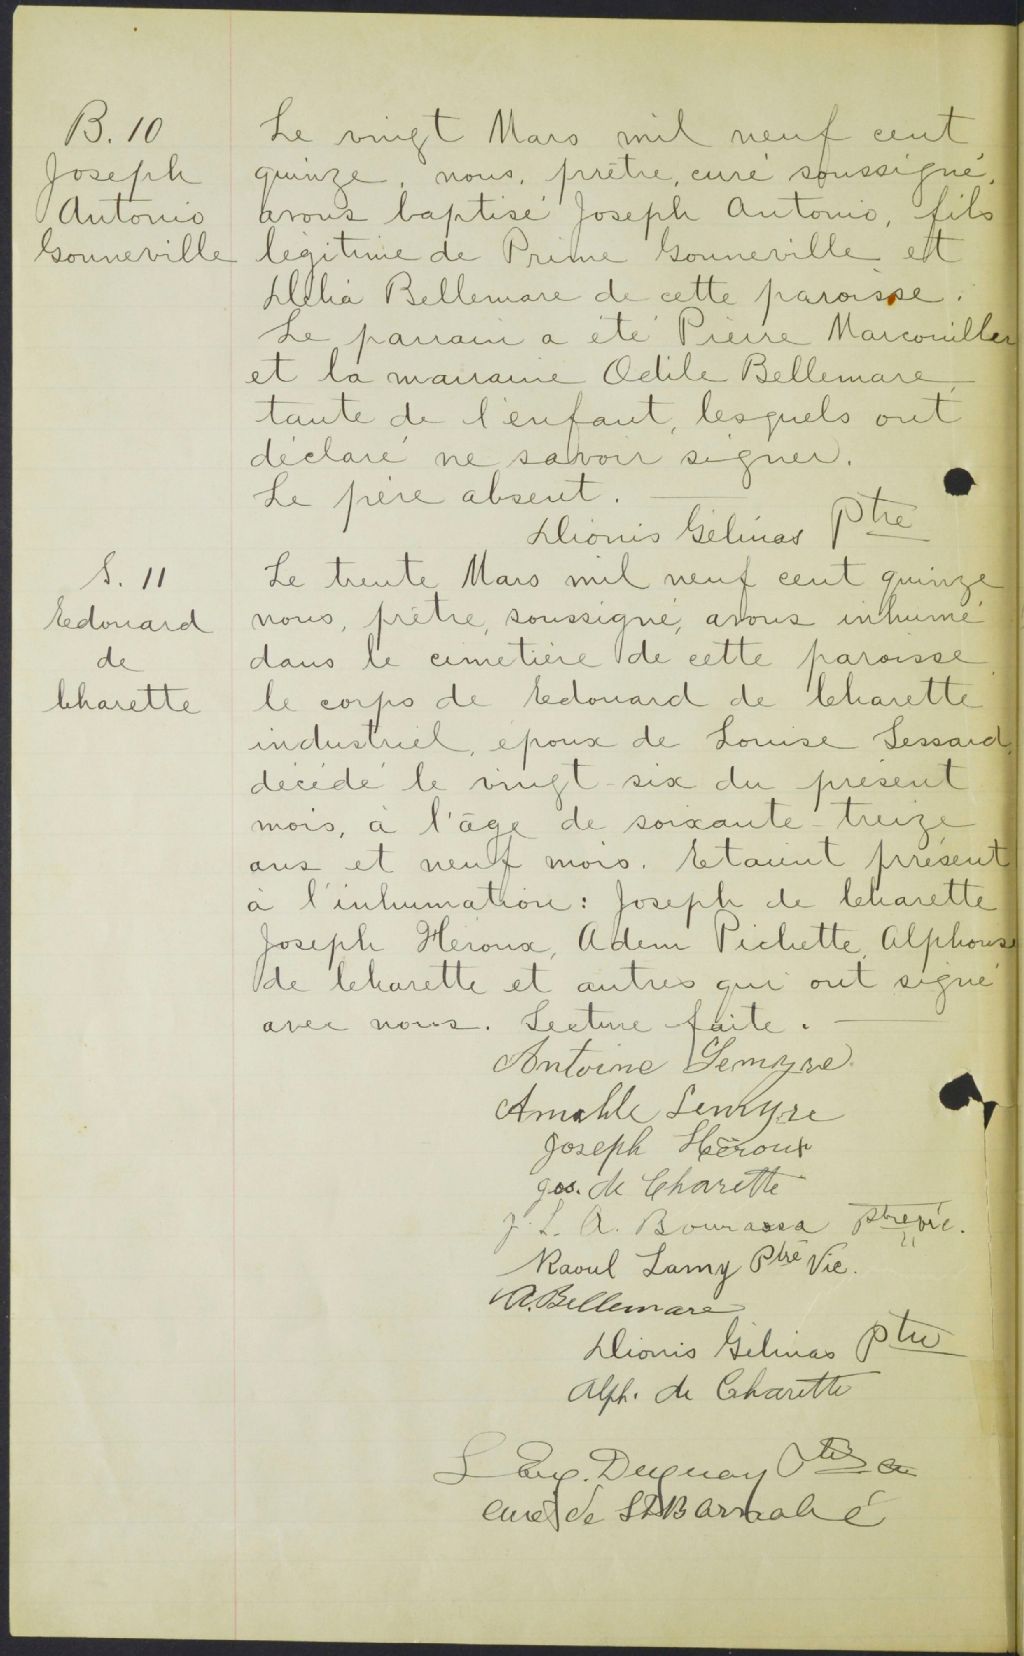 B. 10
Joseph
Antonio
Gonneville
Le vingt Mars mil neuf cent
quinze, nous, prêtre, curé soussigné,
avons baptisé Joseph Antonio, fils
légitime de Prime Gonneville et
Délia Bellemare de cette paroisse.
Le parrain a été Pierre Marcouiller
et la marraine Odile Bellemare,
tante de l'enfant, lesquels ont
déclaré ne savoir signer.
Le père absent.
Dionis Gélinas Ptre
S. 11
Edouard
de
Charette
Le trente Mars mil neuf cent quinze
nous, prêtre, soussigné, avons inhumé
dans le cimetière de cette paroisse
le corps de Edouard de Charette
industriel, époux de Louise Lessard,
décédé le vingt-six du présent
mois, à l'âge de soixante-treize
ans et neuf mois. Etaient présent
à l'inhumation: Joseph de Charette
Joseph Héroux, Adem Pichette, Alphonse
de Charette et autres qui ont signé
avec nous. Lecture faite.
Antoine Lemyre
Amable Lemyre
Joseph Héroux
Jos. de Charette
J. L. A. Bourassa Ptre vic.
Raoul Lamy Ptre Vic.
A. Bellemare
Dionis Gélinas Ptre
Alph. de Charette
L Eug. Duguay Ptre
curé de St Barnabé